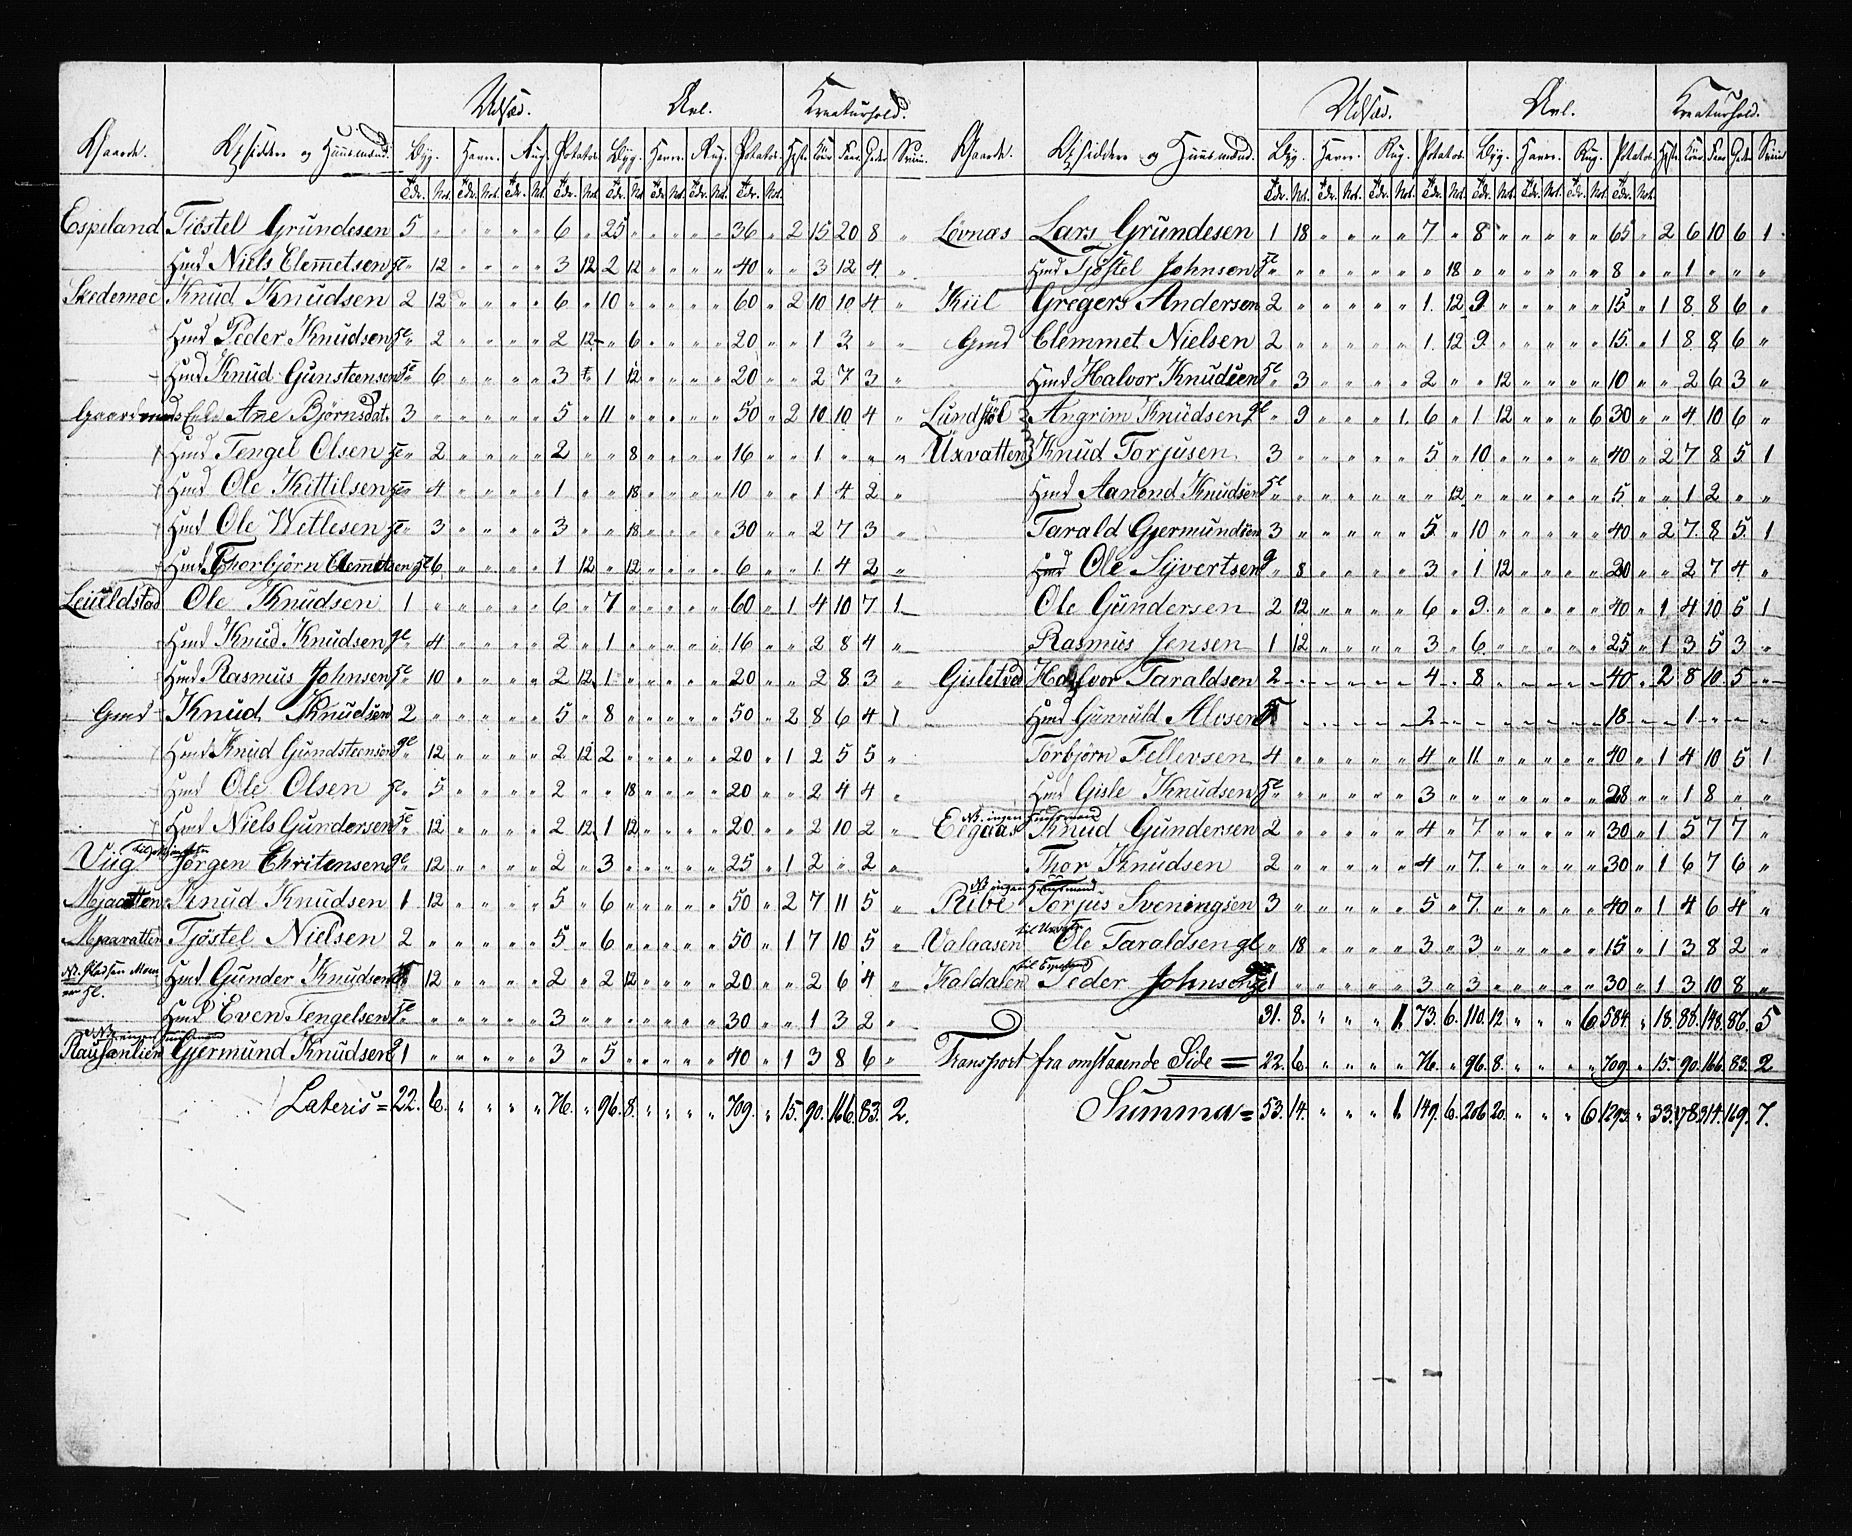 Udsæd. Avl. Kreaturhold.
Gaarde. Opsiddere og Huusmænd. Byg. Havre. Rug. Potatos. Byg. Havre. Rug. Potatos. Heste Kiør Faar Geder Sviin.
Tdr. Sk. Tdr. Sk. Tdr. Sk. Tdr. Sk. Tdr. Sk. Tdr. Sk. Tdr. Sk. Tdr. Sk.
Espeland Tjöstel Grundesen 5 " " " " " 6 " 25 " " " " " 36 " 2 15 20 8 "
Hmd Niels Clemmetsen " 12 " " " " 3 12 2 12 " " " " 40 " " 3 12 4 "
Skedemoe Knud Knudsen 2 12 " " " " 6 " 10 " " " " " 60 " 2 10 10 4 "
Hmd Peder Knudsen " 2 " " " " 2 12 " 6 " " " " 20 " " 1 3 " "
Hmd Knud Gunsteensen " 6 " " " " 3 " 1 12 " " " " 20 " " 2 7 3 "
Gaardmands Enke Ane Björnsdat. 3 " " " " " 5 " 11 " " " " " 50 " 2 10 10 4 "
Hmd Tengel Olsen " 2 " " " " 2 " " 8 " " " " 16 " " 1 " " "
Hmd Ole Kittilsen " 4 " " " " 1 " " 18 " " " " 10 " " 1 4 2 "
Hmd Ole Wetlesen " 3 " " " " 3 " " 18 " " " " 30 " " 2 7 3 "
Hmd Thorbjörn Clemmetsen " 6 " " " " 1 12 " 12 " " " " 6 " " 1 4 2 "
Leiuldstad Ole Knudsen 1 " " " " " 6 " 7 " " " " " 60 " 1 4 10 7 1
Hmd Knud Knudsen " 4 " " " " 2 " 1 " " " " " 16 " " 2 8 4 "
Hmd Rasmus Johnsen " 10 " " " " 2 12 1 " " " " " 20 " " 2 8 3 "
Gmd Knud Knudsen 2 " " " " " 5 " 8 " " " " " 50 " 2 8 6 4 1
Hmd Knud Gundsteensen " 12 " " " " 2 12 2 " " " " " 20 " 1 2 5 5 "
Hmd Ole Olsen " 5 " " " " 2 " " 18 " " " " 20 " " 2 4 4 "
Hmd Niels Gundersen " 12 " " " " 2 12 1 12 " " " " 20 " " 2 10 2 "
Viig Jörgen Chritensen " 12 " " " " 2 " 3 " " " " " 25 " 1 2 " 2 "
Mjaatten Knud Knudsen 1 12 " " " " 5 " 6 " " " " " 50 " 2 7 11 5 "
Mjaavatten Tjöstel Nielsen 2 " " " " " 5 " 6 " " " " " 50 " 1 7 10 5 "
Hmd Gunder Knudsen " 12 " " " " 2 " 2 12 " " " " 20 " " 2 6 4 "
Hmd Even Tengelsen " " " " " " 3 " " " " " " " 30 " " 1 3 2 "
NB. ingen Huusmand
Gjermund Knudsen 1 " " " " " 3 " 5 " " " " " 40 " 1 3 8 6 "
Lateris = 22. 6. " " " " 76. " 96. 8. " " " " 709. " 15. 90. 166. 83. 2.
Udsæd. Avl. Kreaturhold.
Gaarde. Opsiddere og Huusmænd. Byg. Havre. Rug. Potatos. Byg. Havre. Rug. Potatos. Heste Kiør Faar Geder Sviin
Tdr. Sk. Tdr. Sk. Tdr. Sk. Tdr. Sk. Tdr. Sk. Tdr. Sk. Tdr. Sk. Tdr. Sk.
Lövnæs Lars Grundesen 1 18 " " " " 7 " 8 " " " " " 65 " 2 6 10 6 1
Hmd Tjöstel Johnsen " " " " " " " 18 " " " " " " 8 " " 1 " " "
Kiil Gregers Andersen 2 " " " " " 1 12 9 " " " " " 15 " 1 8 8 6 "
Gmd Clemmet Nielsen 2 " " " " " 1 12 9 " " " " " 15 " 1 8 8 6 "
Hmd Halvor Knudsen " 3 " " " " 2 " " 12 " " " " 10 " " 2 6 3 "
Lundstöl Angrim Knudsen " 9 " " " 1 6 " 1 12 " " " 6 30 " " 4 10 6 "
Uxvatten Knud Torjusen 3 " " " " " 5 " 10 " " " " " 40 " 2 7 8 5 1
Hmd Aanond Knudsen " " " " " " " 12 " " " " " " 5 " " 1 2 " "
Tarald Gjermundsen 3 " " " " " 5 " 10 " " " " " 40 " 2 7 8 5 1
Hmd Ole Syvertsen " 8 " " " " 3 " 1 12 " " " " 20 " " 2 7 4 "
Ole Gundersen 2 12 " " " " 6 " 9 " " " " " 40 " 1 4 10 5 1
Rasmus Jensen 1 12 " " " " 3 " 6 " " " " " 25 " 1 3 5 3 "
Gislestad Halvor Taraldsen 2 " " " " " 4 " 8 " " " " " 40 " 2 8 10 5 "
Hmd Gunuld Alvsen " " " " " 2 " " " " " " " 18 " " 1 " " "
Torbjörn Tellevsen 4 " " " " " 4 " 11 " " " " " 40 " 1 4 10 5 1
Hmd Gisle Knudsen " " " " " " 3 " " " " " " " 28 " " 1 8 " "
NB. ingen Huusmænd
Eegaas Knud Gundersen 2 " " " " " 4 " 7 " " " " " 30 " 1 5 7 7 "
Thor Knudsen 2 " " " " " 4 " 7 " " " " " 30 " 1 6 7 6 "
NB ingen Huusmænd
Ribe Torjus Sveningsen 3 " " " " " 5 " 7 " " " " " 40 " 1 4 6 4 "
Valaasen Ole Taraldsen " 18 " " " " 3 " 3 " " " " " 15 " 1 3 8 2 "
til Espeland
Kaldalen Peder Johnsen 1 " " " " " 3 " 3 " " " " " 30 " 1 3 10 8 "
31. 8. " " " 1. 73. 6. 110. 12 " " " 6. 584. " 18. 88. 148. 86. 5
Transport fra omstaaende Side = 22. 6. " " " " 76. " 96. 8. " " " " 709 " 15. 90. 166. 83. 2
Summa = 53. 14. " " " 1. 149. 6. 206 20. " " " 6 1293. " 33. 178. 314. 169. 7.